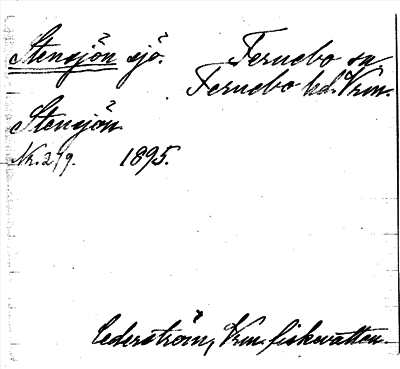 Stensjön sjö. Fernebo sn
Fernebo hd. Vrm.
Stensjön
Nr. 279. 1895.
Cederström, Vrm. fiskvatten.